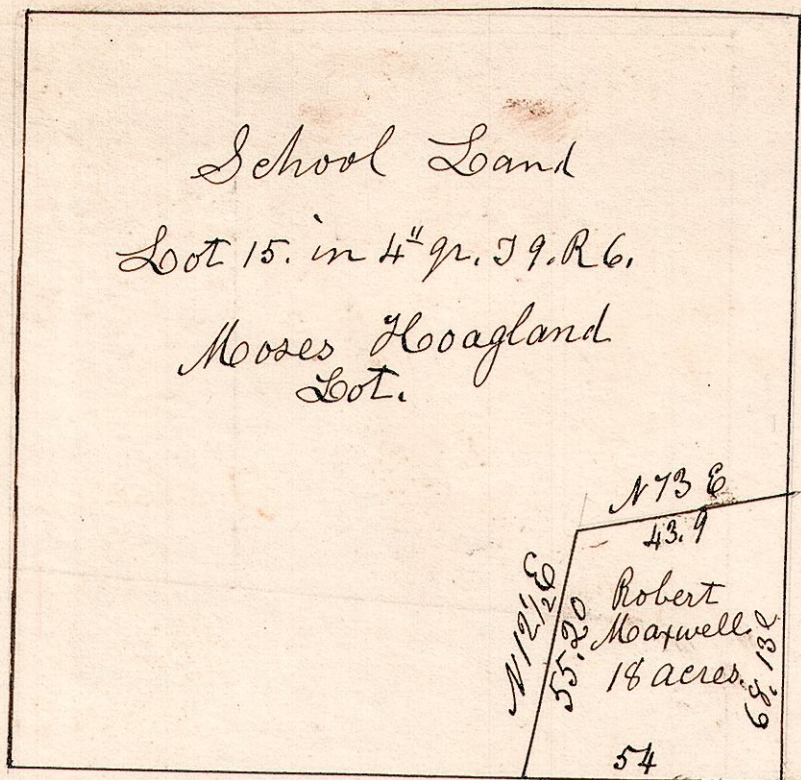 School Land
Lot 15. in 4" qr. T 9. R 6.
Moses Hoagland
Lot.
N 73 E
43.9
N 12 1/2 E
55.20
Robert
Maxwell.
18 acres.
54